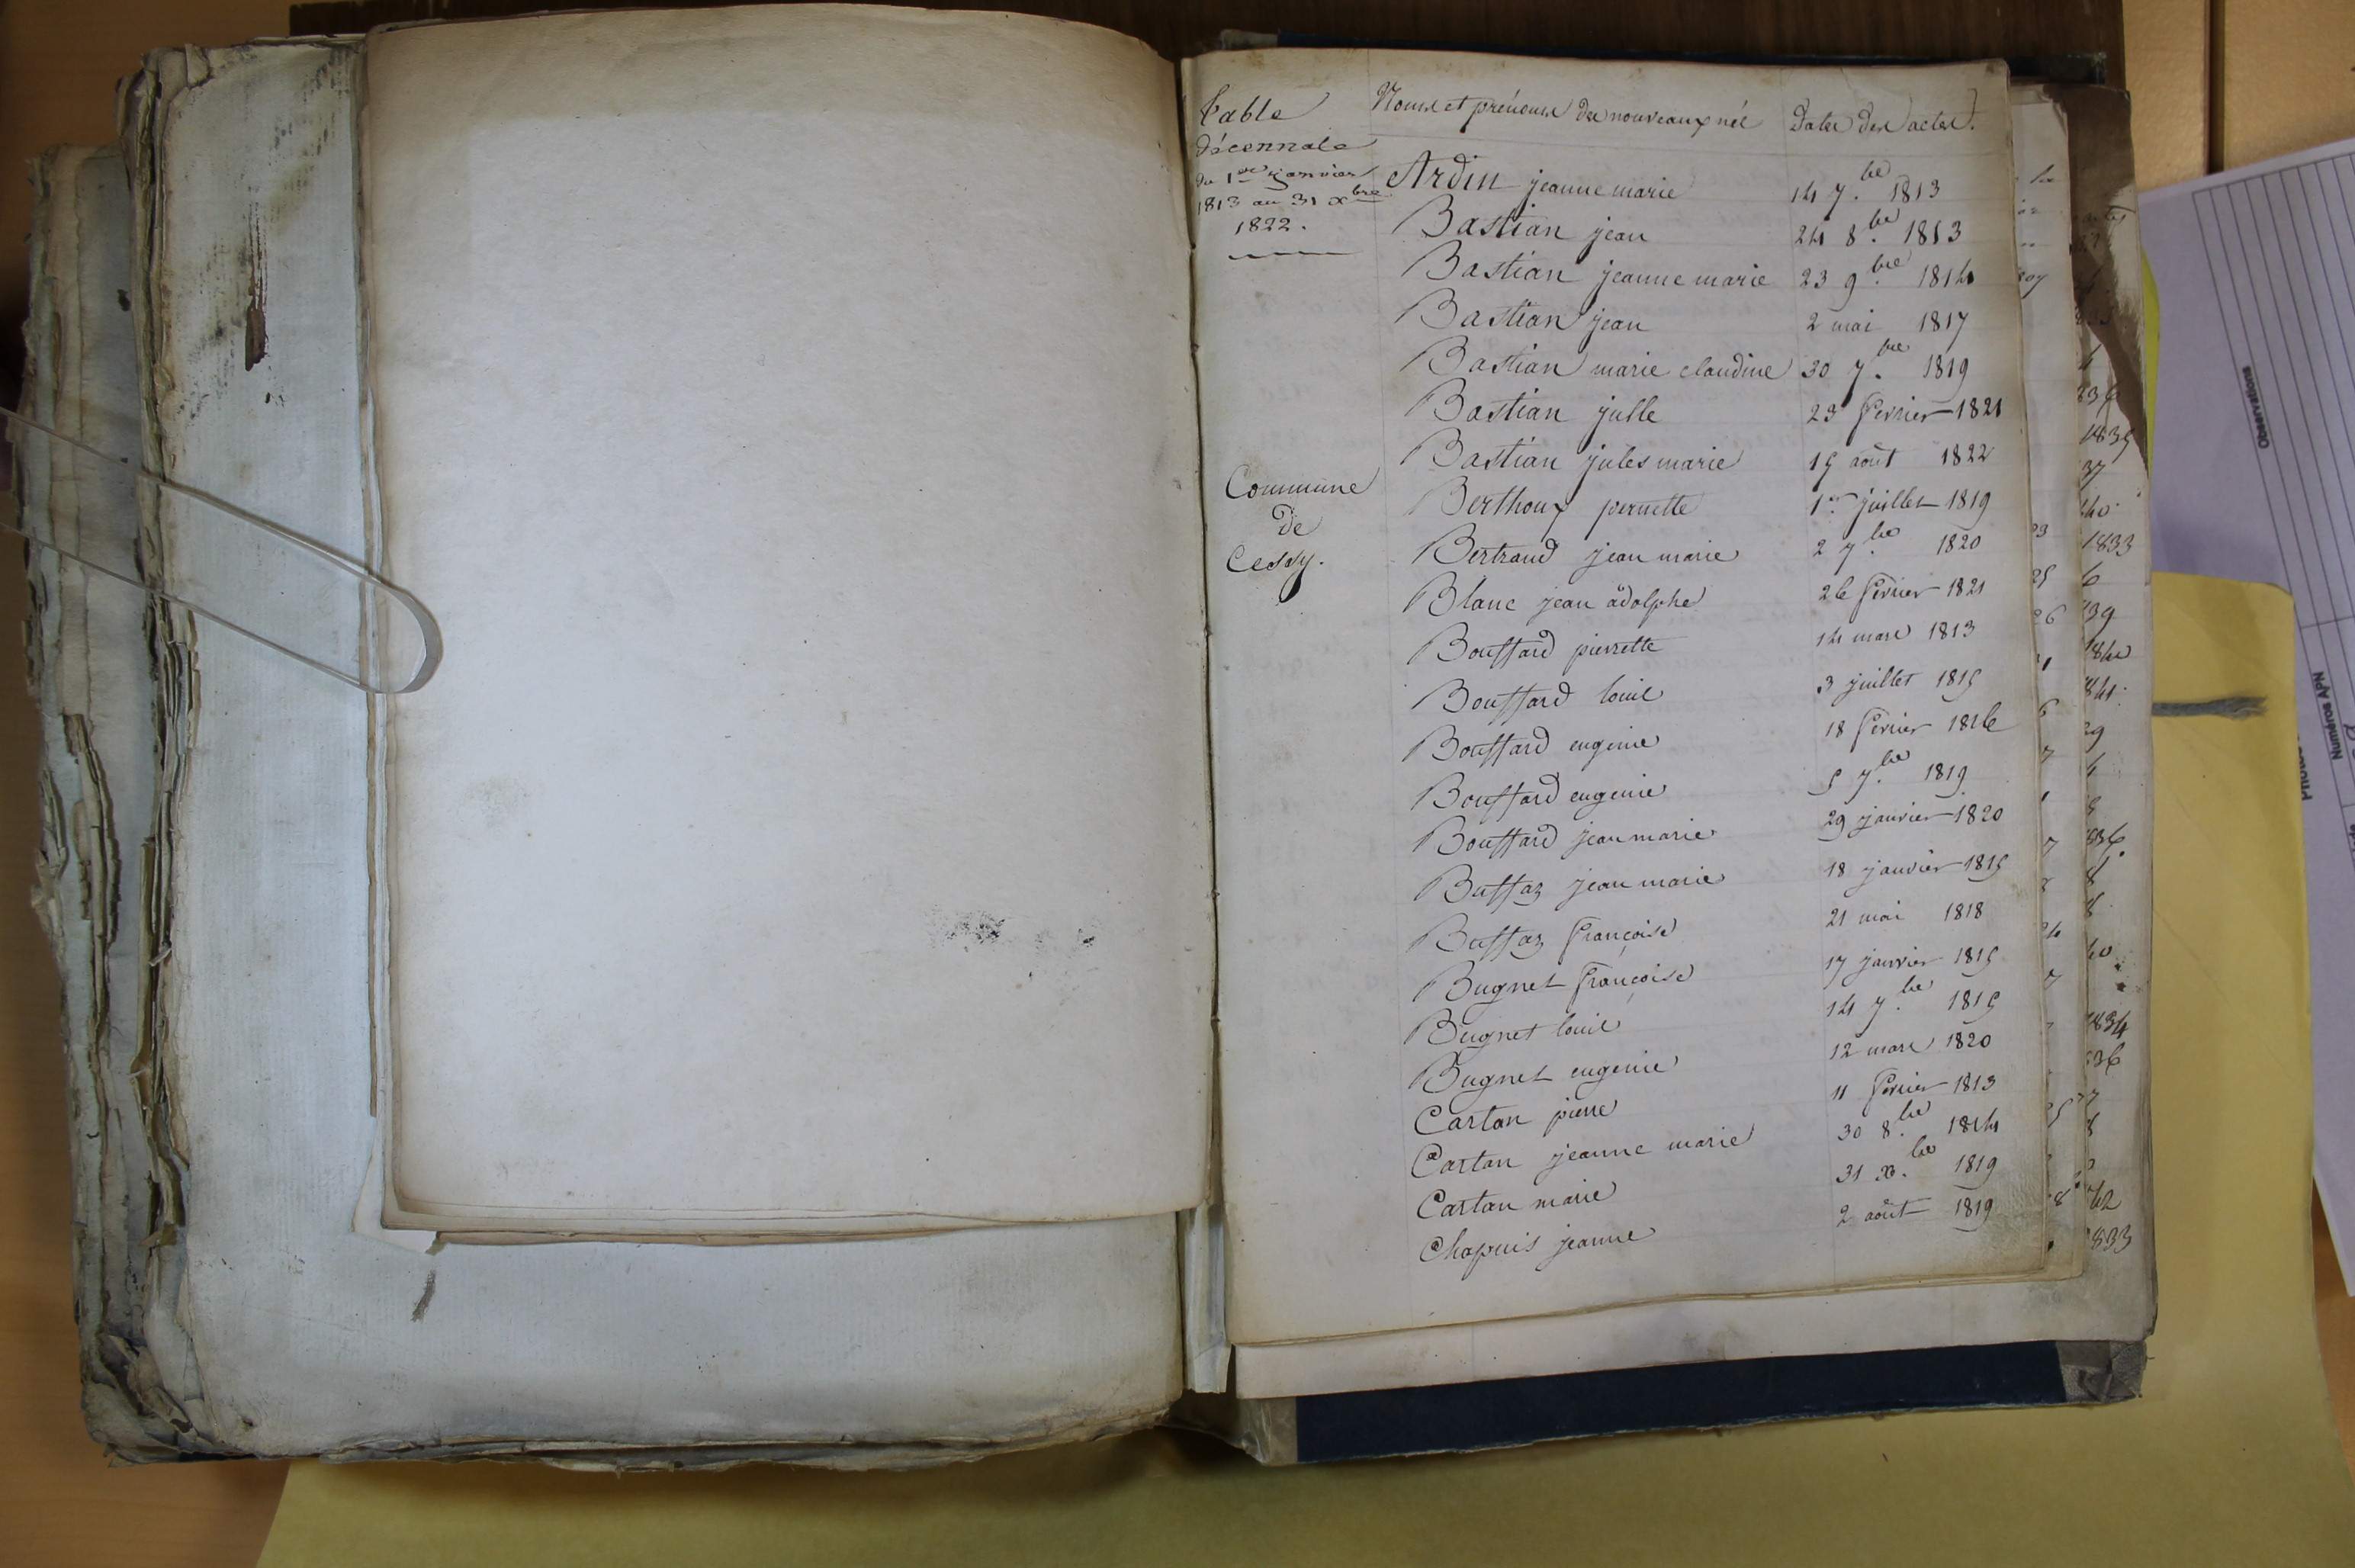 Table
décennale
du 1er janvier
1813 au 31 xbre
1822.
Commune
de
Cessy.
Noms et prénoms des nouveaux nés Dates des actes.
Ardin jeanne marie 14 7.bre 1813
Bastian jean 24 8.bre 1813
Bastian jeanne marie 23 9.bre 1814
Bastian jean 2 mai 1817
Bastian marie claudine 30 7.bre 1819
Bastian julle 23 fevrier 1821
Bastian jules marie 15 août 1822
Berthoux pernette 1er juillet 1819
Bertrand jean marie 2 7.bre 1820
Blanc jean adolphe 26 fevrier 1821
Bouffard pierrette 14 mars 1813
Bouffard louis 3 juillet 1815
Bouffard eugenie 18 fevrier 1816
Bouffard eugenie 5 7.bre 1819
Bouffard jean marie 29 janvier 1820
Buffaz jean marie 18 janvier 1815
Buffaz françoise 21 mai 1818
Bugnet françoise 17 janvier 1815
Bugnet louis 14 7.bre 1815
Bugnet eugenie 12 mars 1820
Cartan pierre 11 fevrier 1813
Cartan jeanne marie 30 8.bre 1814
Cartan marie 31 x.bre 1819
Chapuis jeanne 2 août 1819
1833
1834
833
Observations
Numéros APN